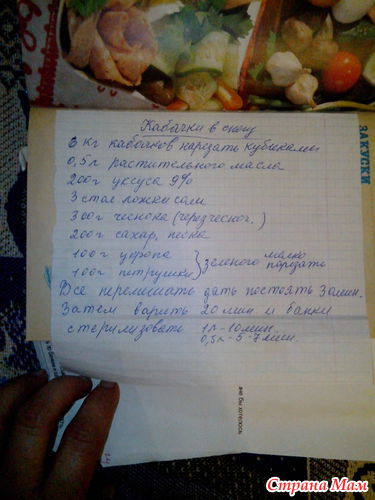 ЗАКУСКИ
Кабачки в снегу
6 кг кабачков нарезать кубиками
0,5 л растительного масла
200 г уксуса 9%
3 стол ложки соли
300 г чеснока (через чесног.)
200 г сахар, песка
100 г укропа } зеленого мелко
100 г петрушки порезать
Все перемешать дать постоять 30 мин.
Затем варить 20 мин и банки
стерилизовать 1л - 10 мин.
0,5 л - 5 - 7 мин.
Страна Мам